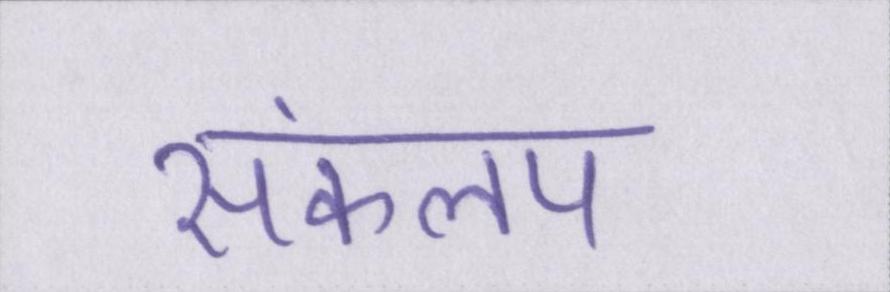 संकलप